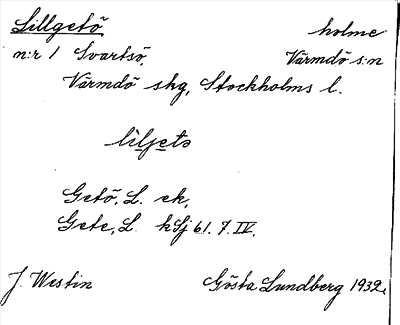 Lillgetö holme
n:r 1 Svartsö, Värmdö s:n
Värmdö skg, Stockholms l.
lìljetə
Getö, L. ek,
Gete, L. hSj 61. 7. IV.
J. Westin Gösta Lundberg 1932.